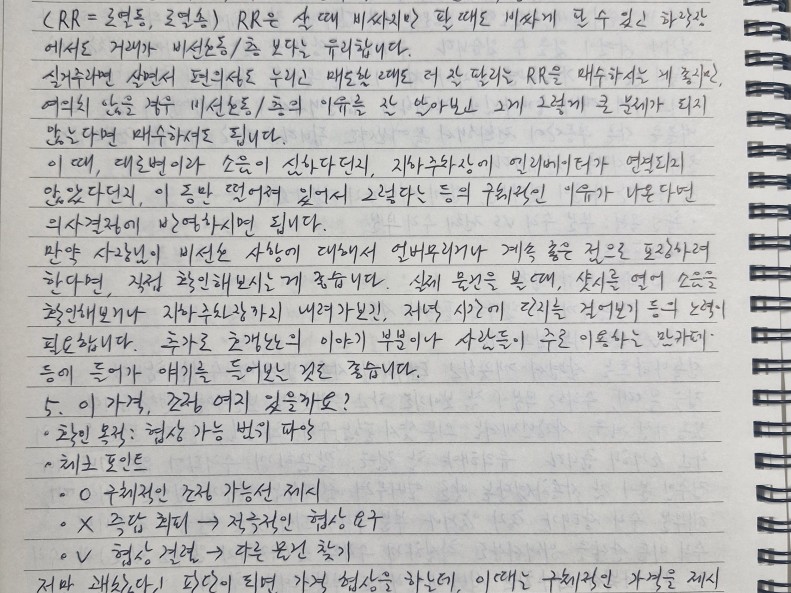 (RR = 로열동, 로열층) RR은 살 때 비싸지만 팔 때도 비싸게 팔 수 있고 하락장
에서도 거래가 비선호동/층 보다는 유리합니다.
실거주라면 살면서 편의성도 누리고 매도할 때도 더 잘 팔리는 RR을 매수하시는 게 좋지만,
여의치 않을 경우 비선호동/층의 이유를 잘 알아보고 그게 그렇게 큰 문제가 되지
않는다면 매수하셔도 됩니다.
이 때, 대로변이라 소음이 심하다던지, 지하주차장에 엘리베이터가 연결되지
않았다던지, 이 동만 떨어져 있어서 그렇다는 등의 구체적인 이유가 나온다면
의사결정에 반영하시면 됩니다.
만약 사장님이 비선호 사항에 대해서 얼버무리거나 계속 좋은 점으로 포장하려
한다면, 직접 확인해보시는게 좋습니다. 실제 물건을 볼 때, 샷시를 열어 소음을
확인해보거나 지하주차장까지 내려가보긴, 저녁 시간에 단지를 걸어보기 등의 노력이
필요합니다. 추가로 호갱노노의 이야기 부분이나 사람들이 주로 이용하는 맘카페
등에 들어가 얘기를 들어보는 것도 좋습니다.
5. 이 가격, 조정 여지 있을까요?
· 확인 목적: 협상 가능 범위 파악
· 체크 포인트
· O 구체적인 조정 가능선 제시
· X 즉답 회피 → 적극적인 협상 요구
· V 협상 결렬 → 다른 물건 찾기
저마 괜찮다! 판단이 되면 가격 협상을 하는데, 이 때는 구체적인 가격을 제시